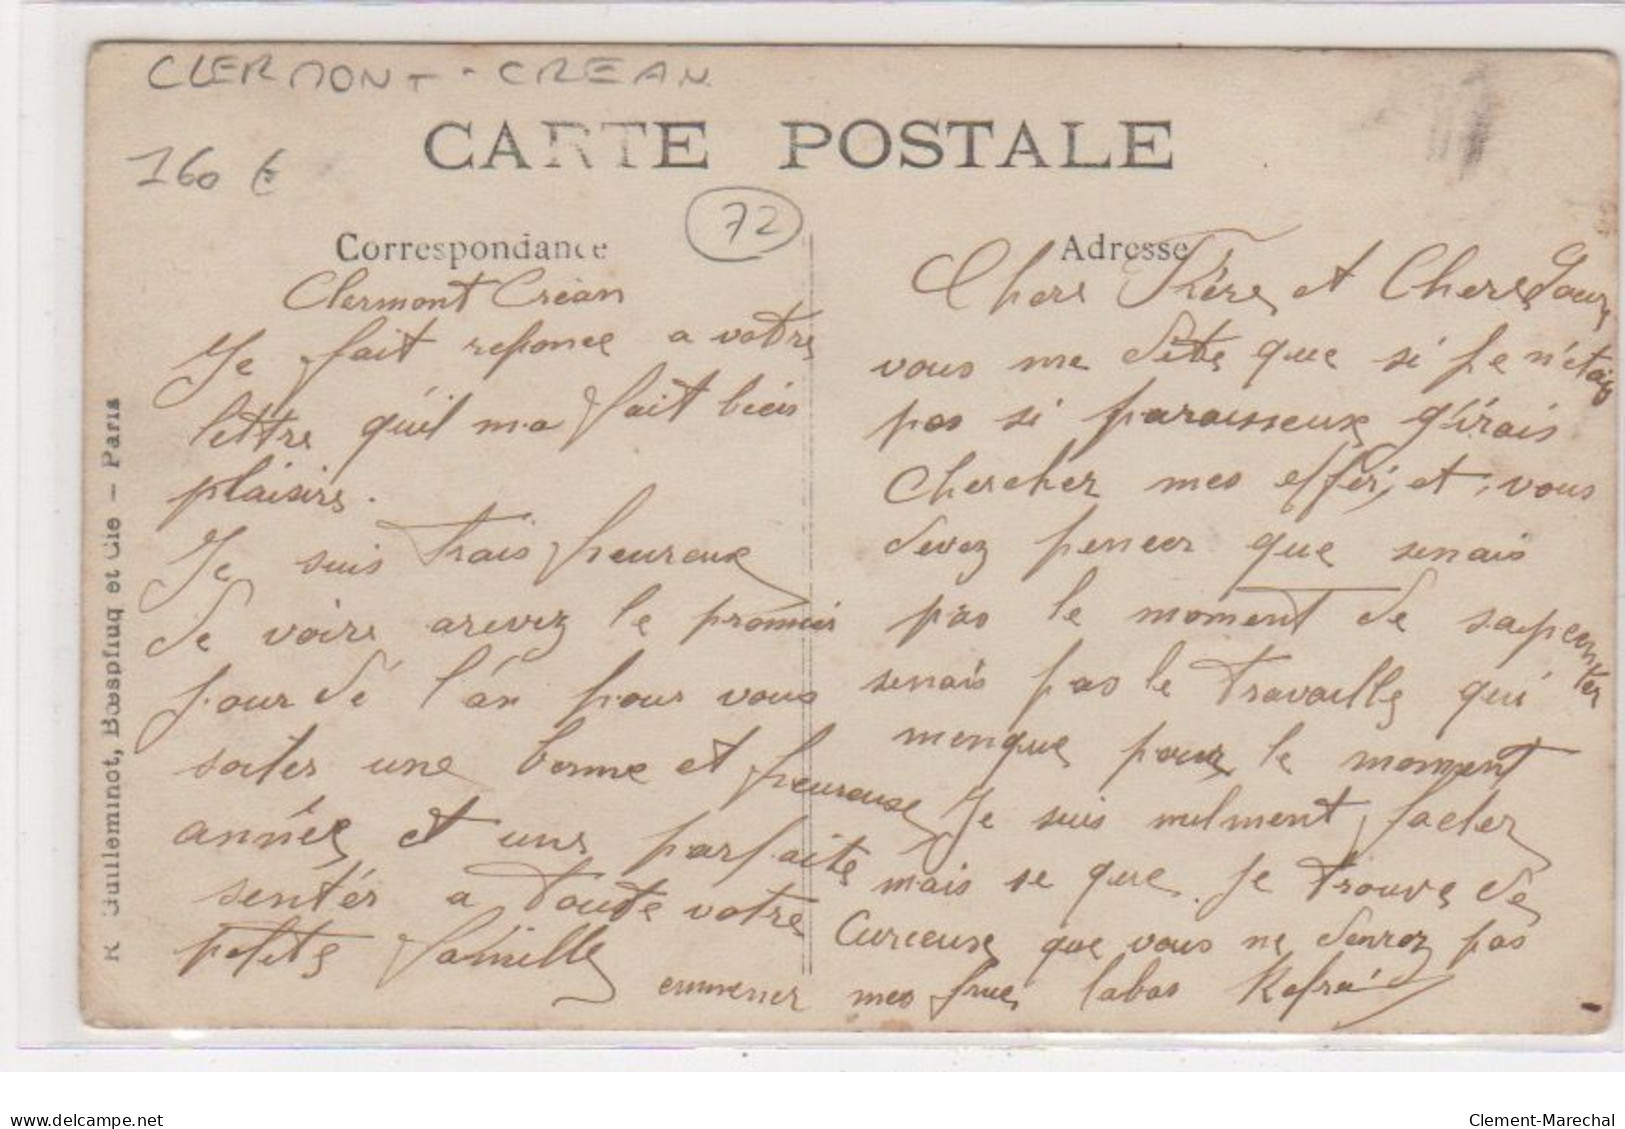 CLERMONT - CREAN
160 €
CARTE POSTALE
72
Correspondance
Clermont Créan
Je fait reponce a votre
lettre qu'il ma fait bien
plaisirs.
Je suis trais heureux
de voire arevez le promier
jour dé l'án pour vous
soiter une bonne et heureuse
année et une parfaite
sentér a toute votre
petite famille
Adresse
Chers Frère et Chere Soeur
vous me dite que si je n'étais
pas si paraisseux g'irais
chercher mes effér, et, vous
devez pencer que senais
pas le moment de sapcenter
senais pas le travaille qui
menque pour le moment
Je suis nulment facher
mais se que je trouve de
curieuse que vous ne devrez pas
emmener mes labas
R Guilleminot, Bœspflug et Cie - Paris
delcampe.net
Clement-Marechal